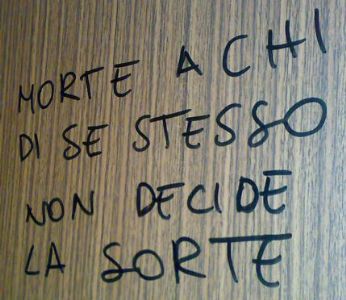 MORTE A CHI
DI SE STESSO
NON DECIDE
LA SORTE